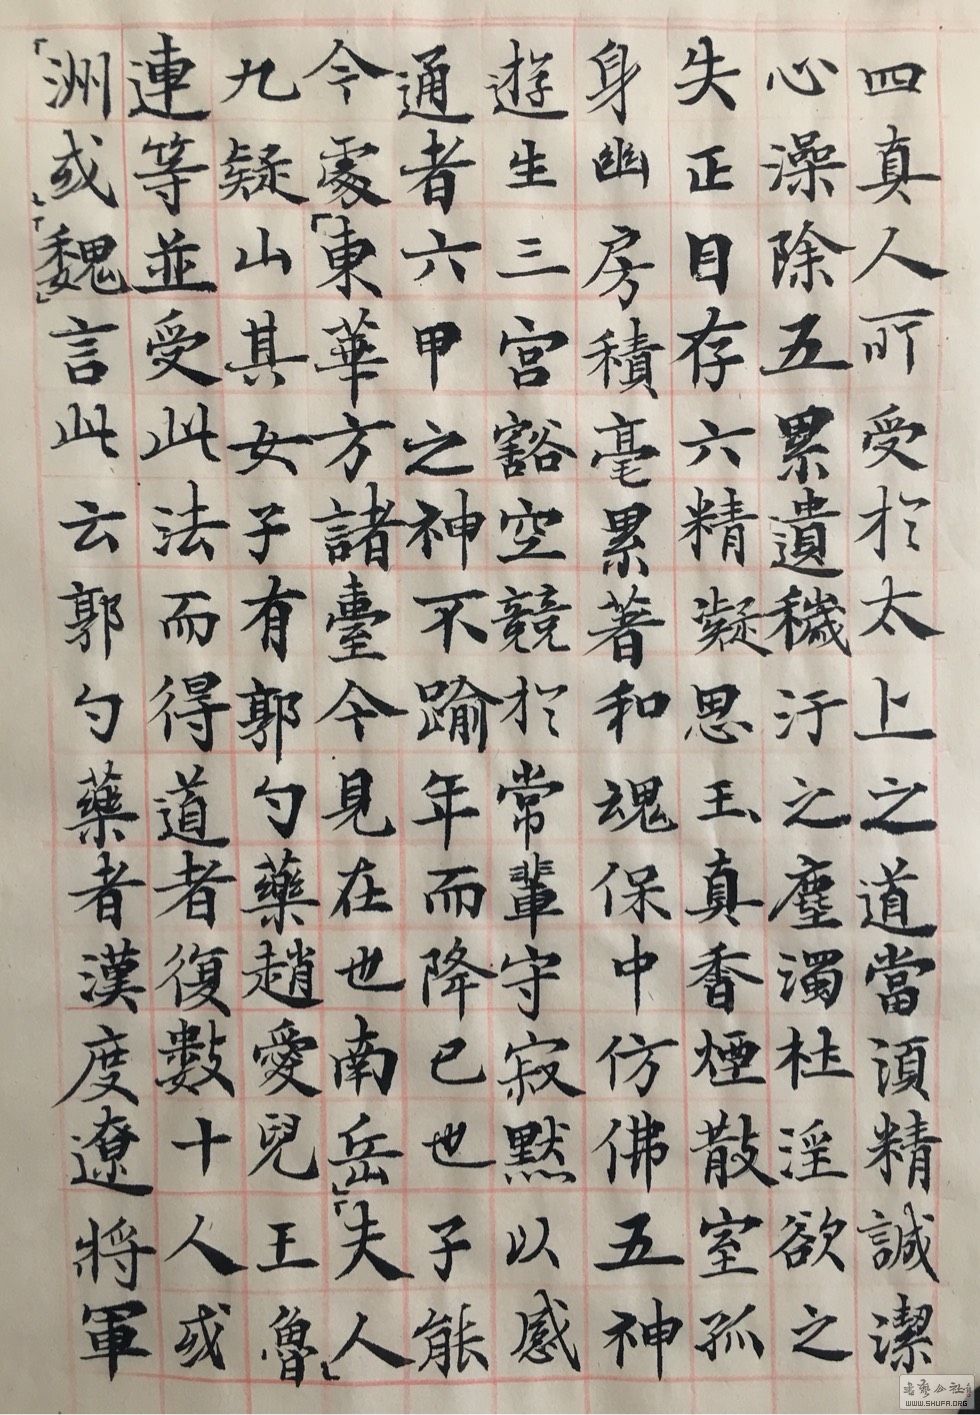 四真人所受於太上之道當須精誠潔
心澡除五累遺穢汙之塵濁杜淫欲之
失正目存六精凝思玉真香煙散室孤
身幽房積毫累著和魂保中仿佛五神
遊生三宮豁空競於常輩守寂默以感
通者六甲之神不踰年而降已也子能
今處「東華方諸臺今見在也南岳」「夫人
九疑山其女子有郭勺藥趙愛兒王魯」
連等並受此法而得道者復數十人或
「洲或」「魏」言此云郭勺藥者漢度遼將軍
書藝公社
WWW.SHUFA.ORG